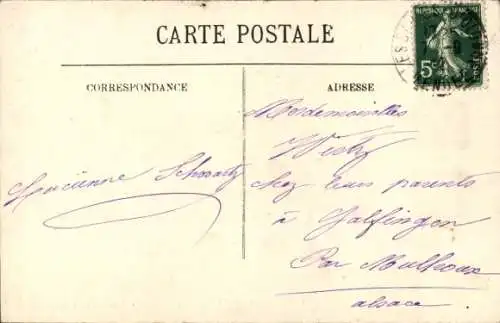 CARTE POSTALE
CORRESPONDANCE
ADRESSE
REPUBLIQUE FRANÇAISE
5c
Mesdemoiselles
Wisty
chez leurs parents
à Galfingen
Par Mulhouse
alsace
Lucienne Schwartz